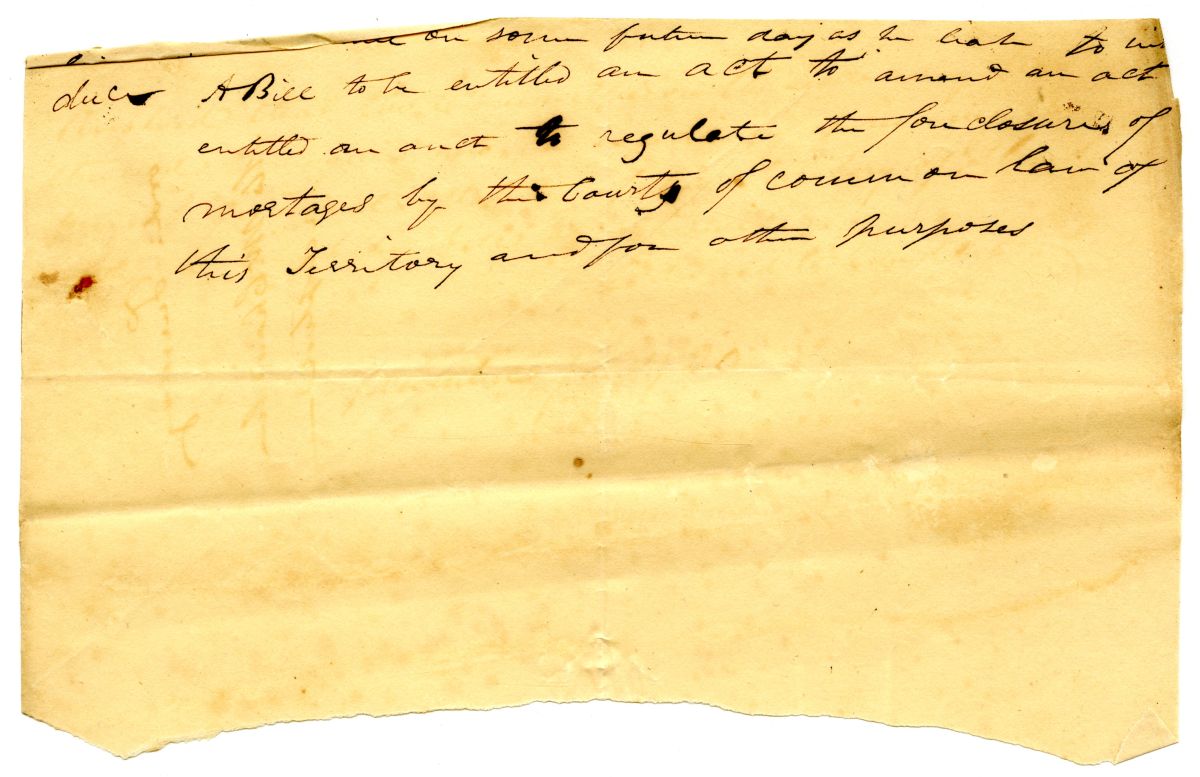 on some future day ask leave to in
duce A Bill to be entitled an act to amend an act
entitled an anct to regulate the foreclosures of
mortages by the Courts of common law of
this Territory and for other purposes